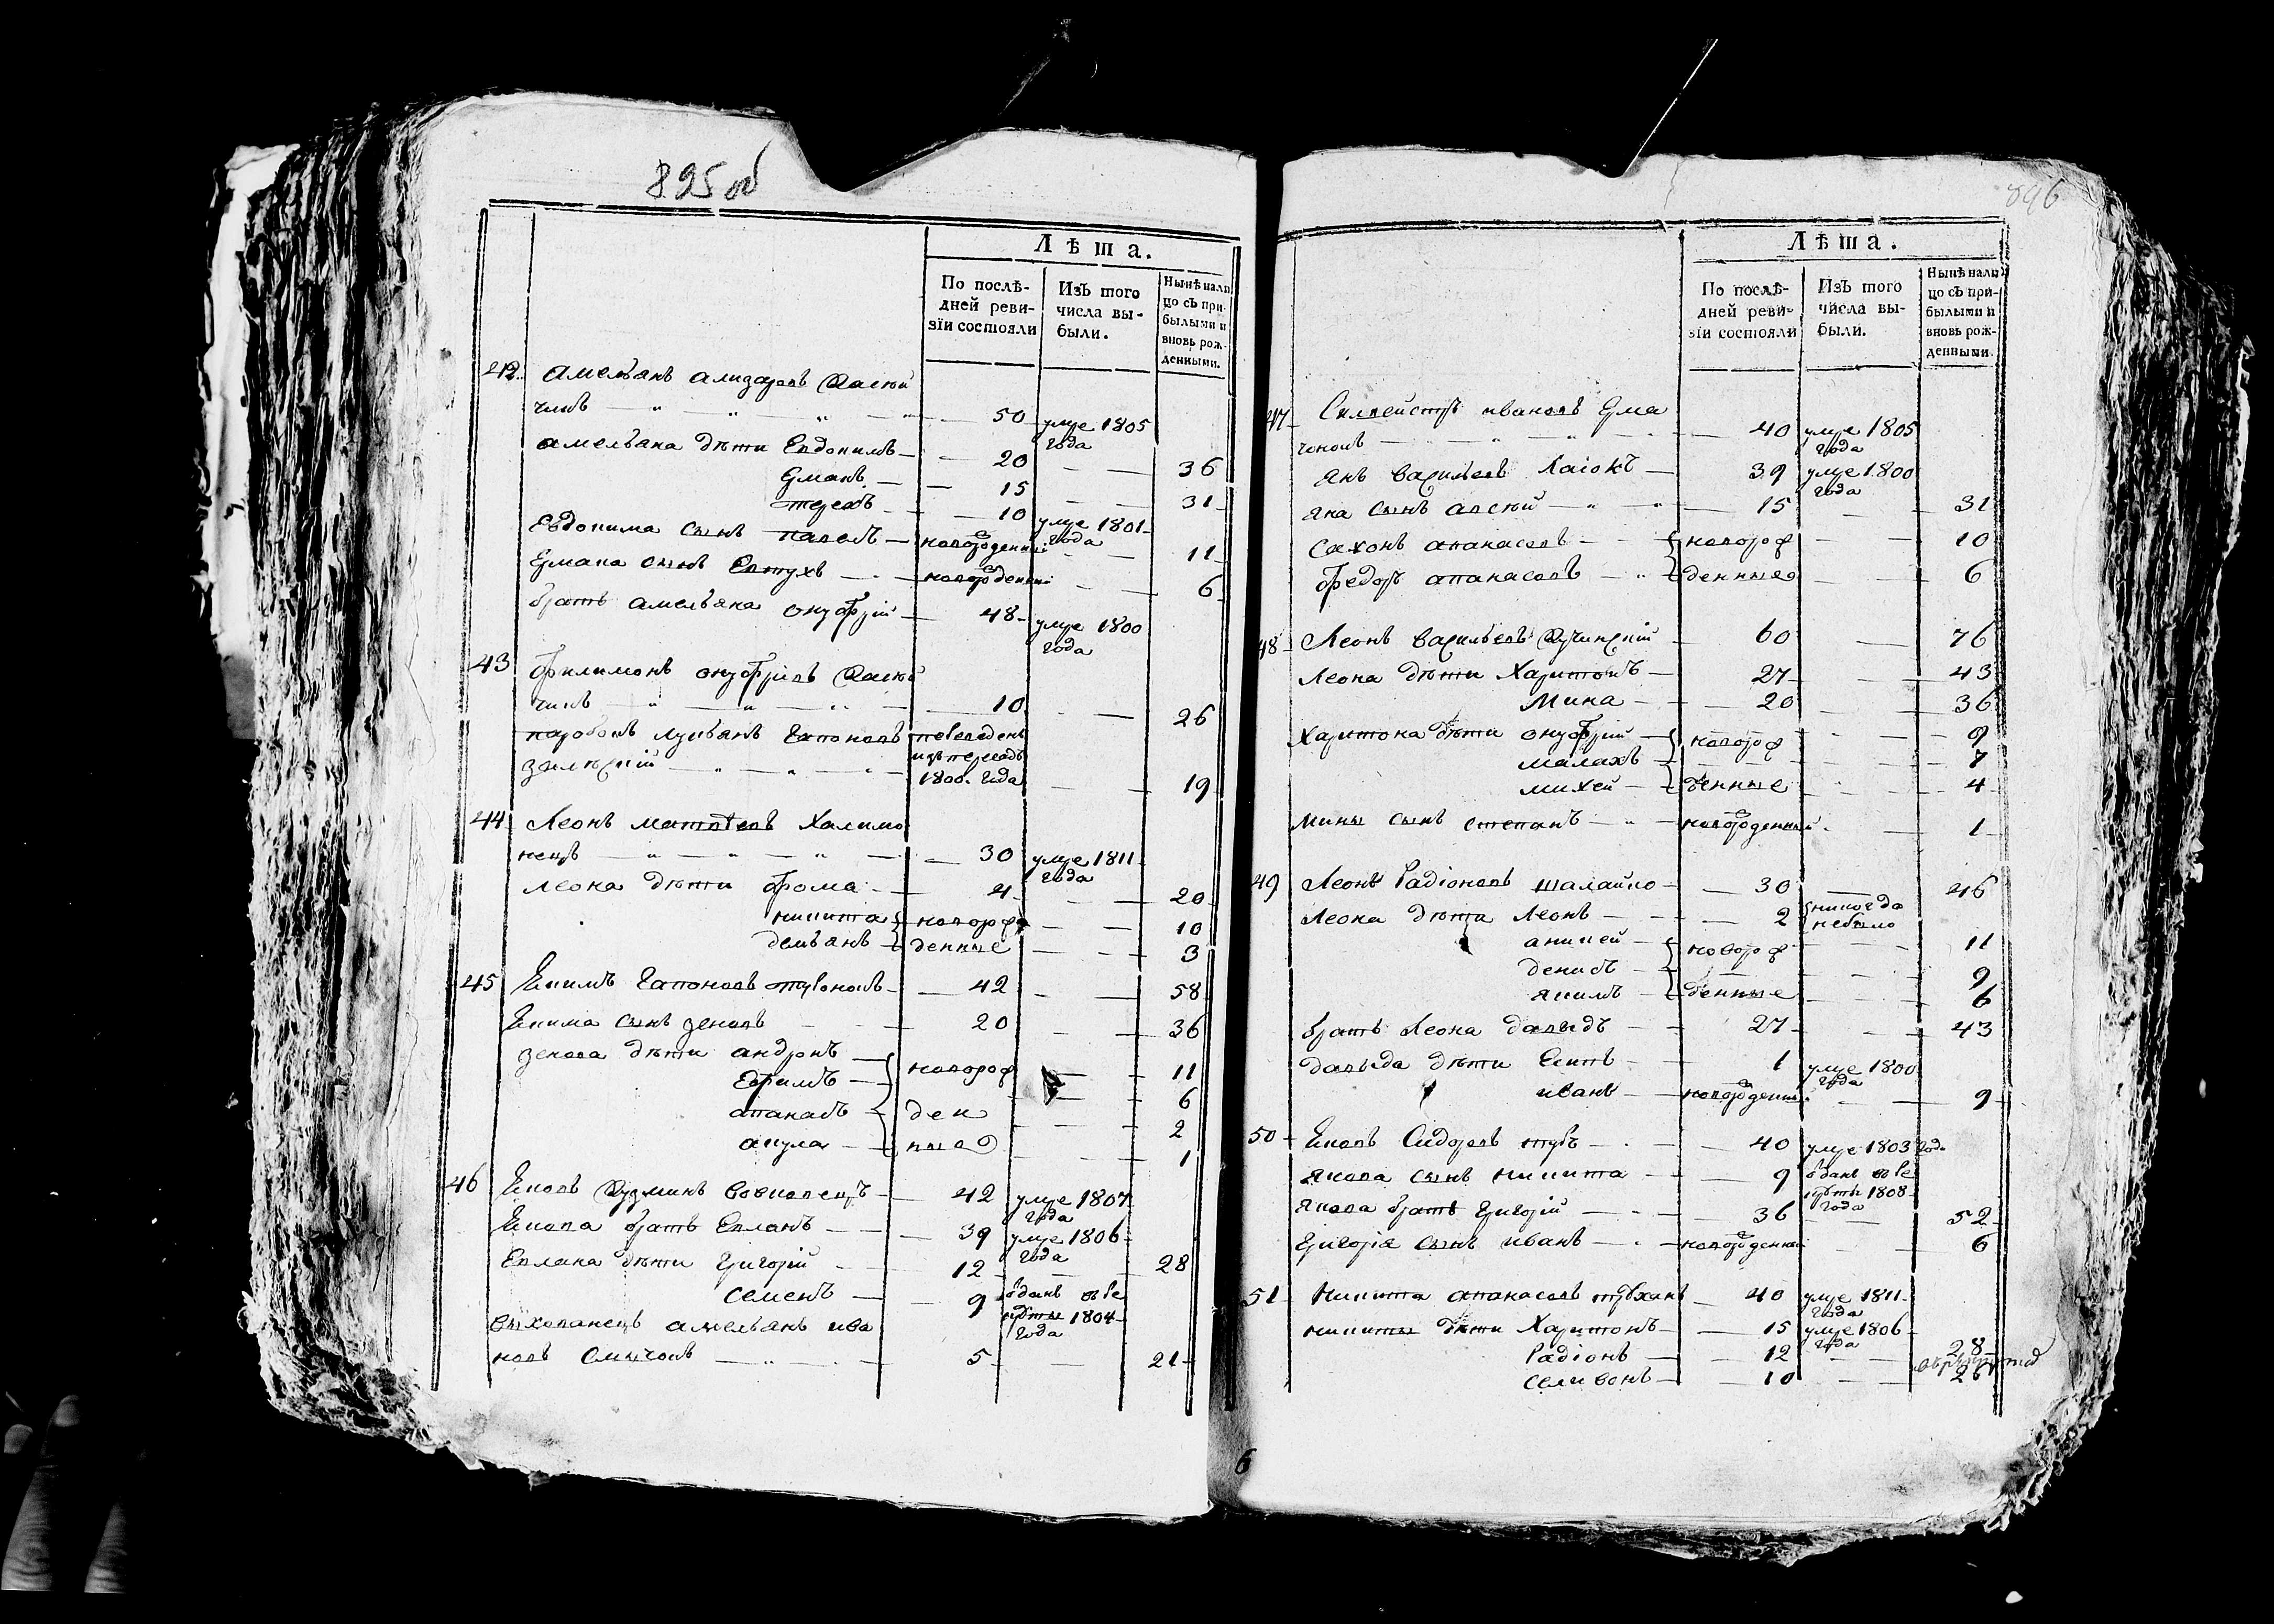 825 об
Лѣта.
По послѣ-
дней реви-
зіи состояли
Изъ того
числа вы-
были.
Нынѣ нали
цо съ при-
былыми и
вновь рож-
денными.
42 Амельянъ
чикъ 50 уме 1805
года
амельяна дѣти Евдокимъ 20 36
Ерманъ 15 31
терехъ 10 уме 1801
года
Евдокима сынъ павелъ новорожденный 11
Ермана сынъ Евтухъ новорожденный 6
братъ амельяна онуфрій 48 уме 1800
года
43 Филимонъ онуфріевъ
чикъ 10 26
Гапоновъ
1800 года 19
44 Леонъ матвѣевъ Халимо
нецъ 30 уме 1811
года
леона дѣти фома 4 20
никита новорож 10
демьянъ денные 3
45 Екимъ Гапоновъ 42 58
Екима сынъ зеновъ 20 36
зенова дѣти андронъ новорож 11
Ефимъ 6
апанасъ ден 2
акула ные 1
46 Яковъ Кузминъ 42 уме 1807
года
Якова братъ Евланъ 39 уме 1806
года
Евлана дѣти григорій 12 28
семенъ 9 отданъ въ ре
круты 1804
года
выхованецъ амельянъ ива
новъ 5 21
896
Лѣта.
По послѣ-
дней реви-
зіи состояли
Изъ того
числа вы-
были.
Нынѣ нали
цо съ при-
былыми и
вновь рож-
денными.
47 Силвейстръ ивановъ Ерма
40 уме 1805
года
янъ васильевъ Хаіокъ 39 уме 1800
года
яна сынъ 15 31
Сахонъ апанасовъ новорож 10
федоръ апанасовъ денные 6
48 Леонъ васильевъ Кучинскій 60 76
Леона дѣти Харитонъ 27 43
Мина 20 36
Харитона дѣти онуфрій новорож 9
малахъ 7
михей денные 4
мины сынъ степанъ новорожденный 1
49 Леонъ Радіоновъ шалайко 30 46
Леона дѣти Леонъ 2 никогда
небыло
аникей новорож 11
денисъ 9
якимъ денные 6
братъ Леона давыдъ 27 43
давыда дѣти 1 уме 1800
года
иванъ новорожденны 9
50 Яковъ Сидоровъ 40 уме 1803 года
якова сынъ никита 9 отданъ въ ре
круты 1808
года
якова братъ григорій 36 52
григорія сынъ иванъ новорожденный 6
51 Никита апанасовъ 40 уме 1811
года
никиты дѣти Харитонъ 15 уме 1806
года
Радіонъ 12 28
селивонъ 10 26
6